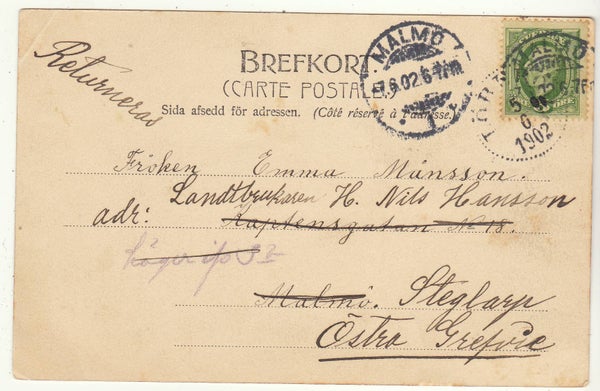 Returneras
BREFKORT
(CARTE POSTALE)
Sida afsedd för adressen. (Côté réservé à l'adresse.)
MALMÖ
7.6.02
1
5
6
1902
Fröken Emma Månsson.
Landtbrukaren H. Nils Hansson
adr: Kaptensgatan No 18.
Malmö. Steglarp
Östra Grefvie